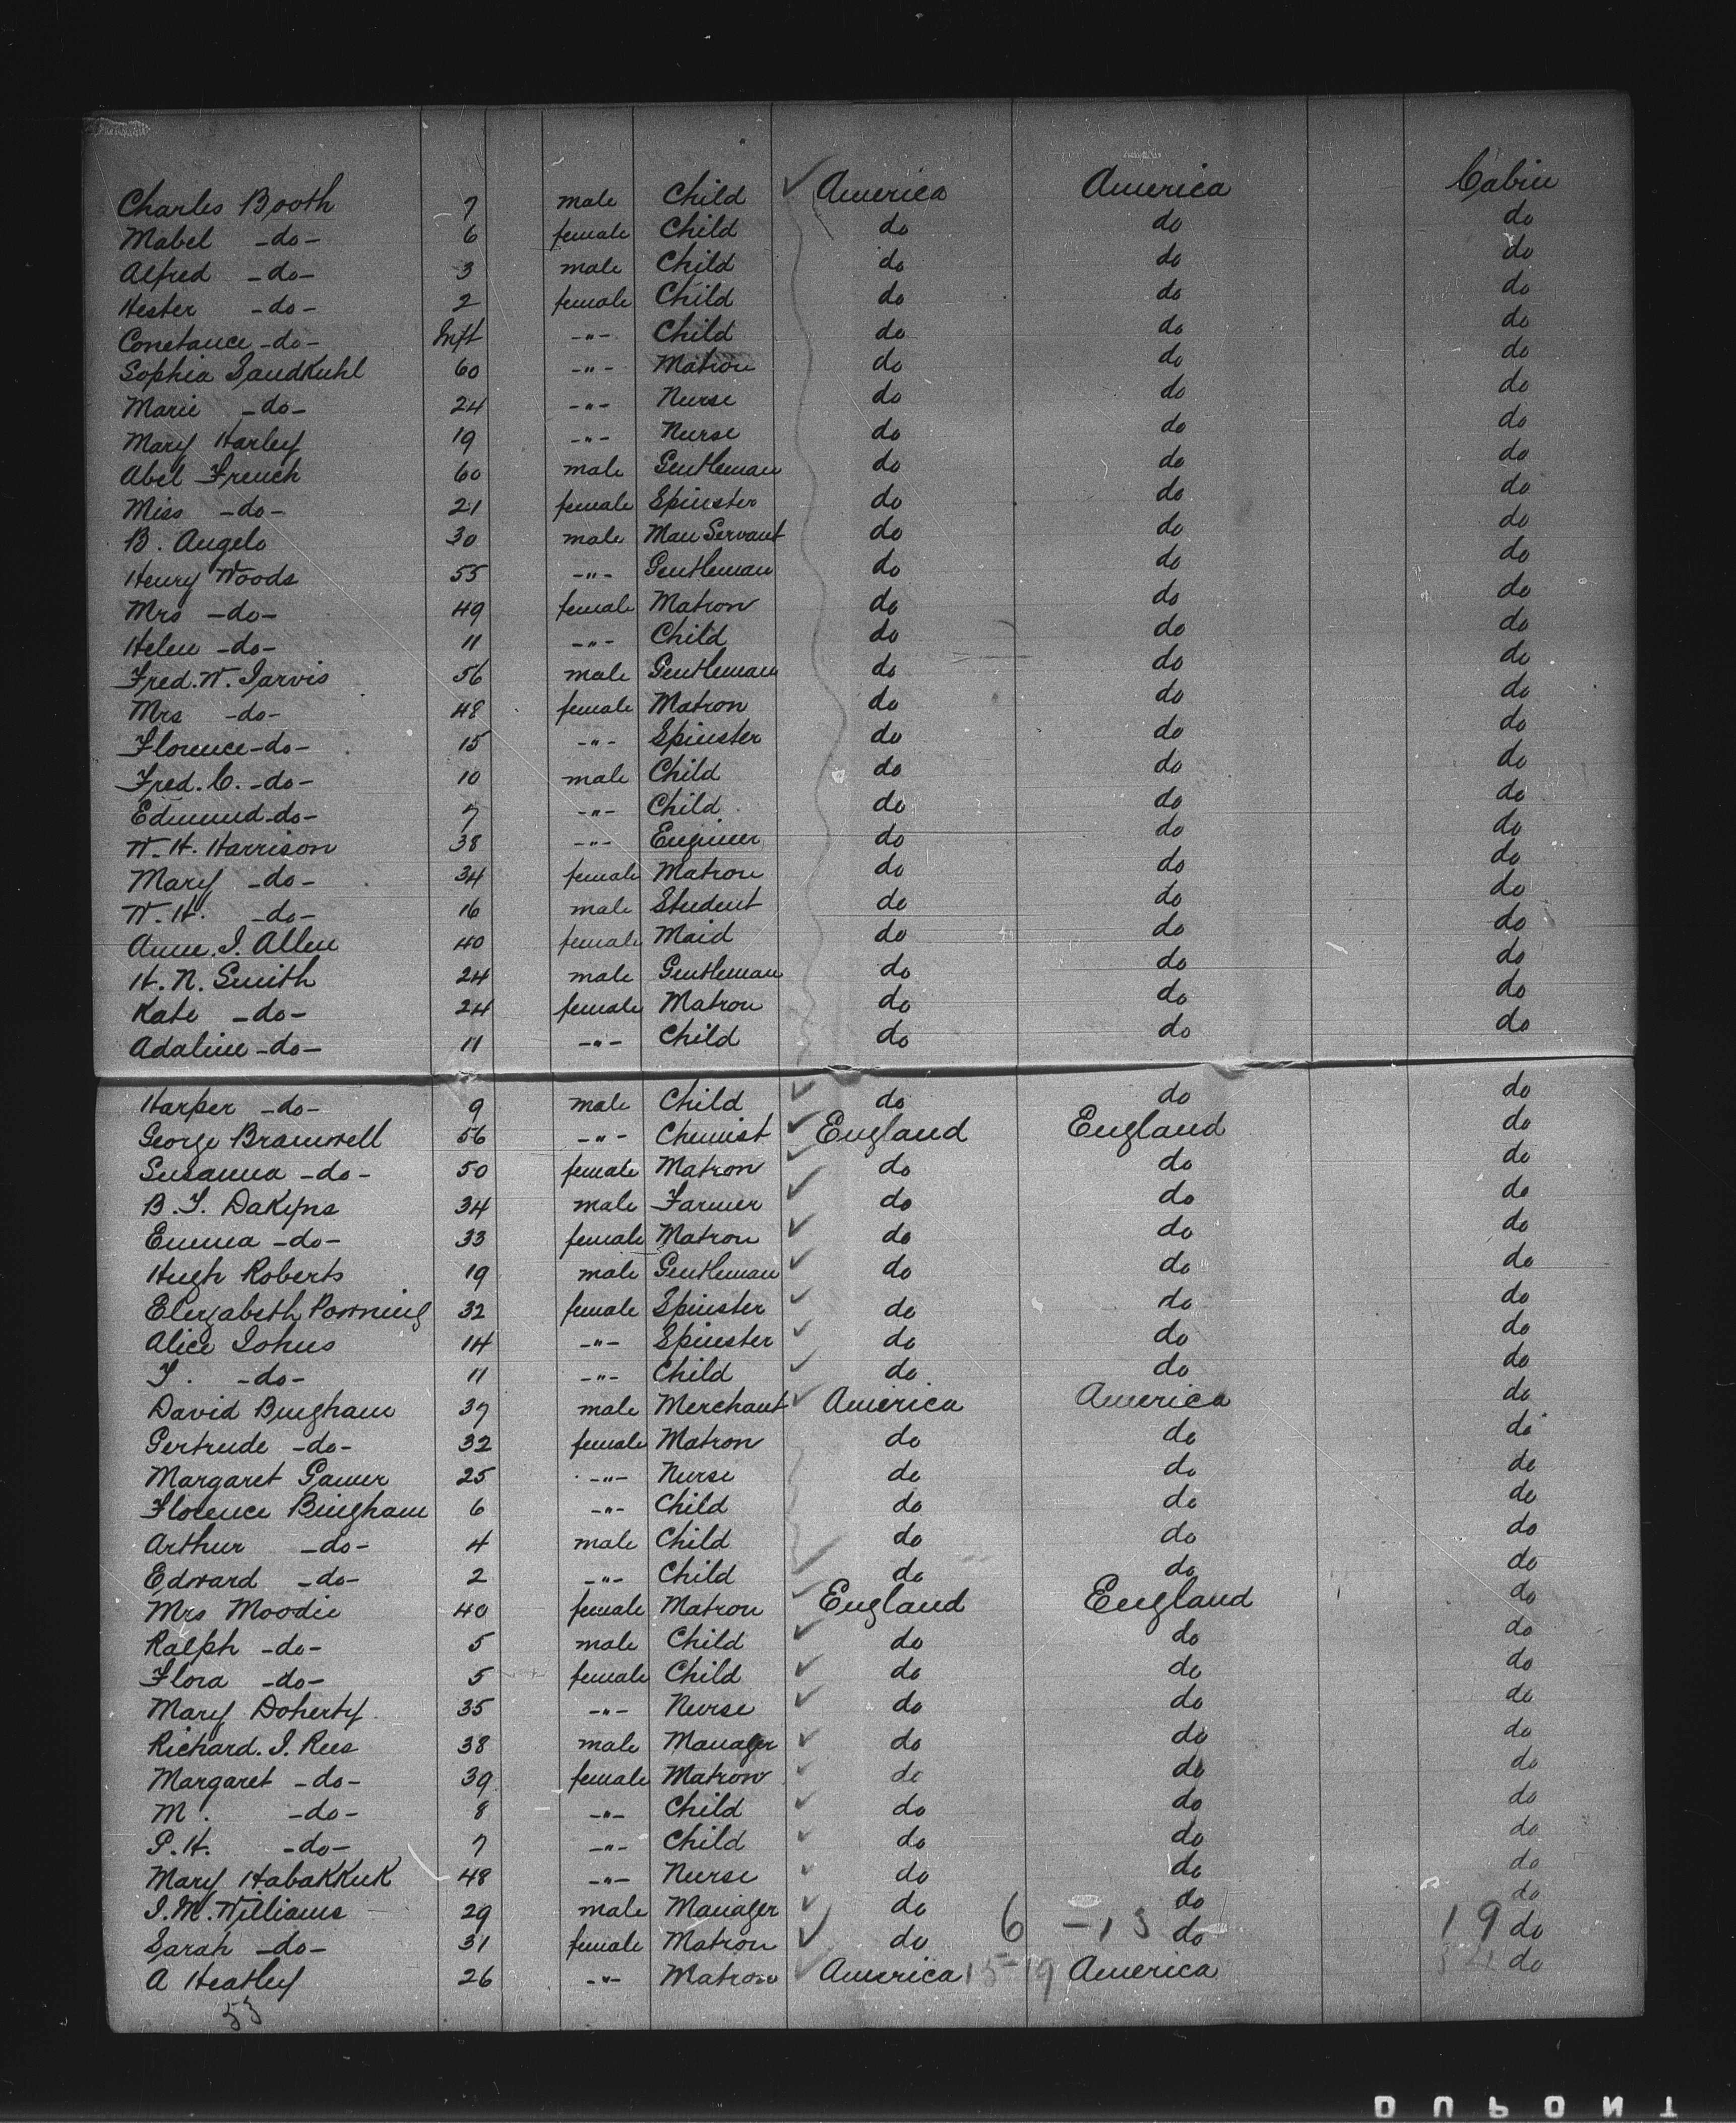 Charles Booth 7 male Child America America Cabin
Mabel -do- 6 female Child do do do
Alfred -do- 3 male Child do do do
Hester -do- 2 female Child do do do
Constance -do- Inft -"- Child do do do
Sophia Sandkuhl 60 -"- Matron do do do
Marie -do- 24 -"- Nurse do do do
Mary Harley 19 -"- Nurse do do do
Abel French 60 male Gentleman do do do
Miss -do- 21 female Spinster do do do
B. Angelo 30 male Man Servant do do do
Henry Woods 55 -"- Gentleman do do do
Mrs -do- 49 female Matron do do do
Helen -do- 11 -"- Child do do do
Fred. W. Jarvis 56 male Gentleman do do do
Mrs -do- 48 female Matron do do do
Florence -do- 15 -"- Spinster do do do
Fred. C. -do- 10 male Child do do do
Edmund -do- 7 -"- Child do do do
W. H. Harrison 38 -"- Enginer do do do
Mary -do- 34 female Matron do do do
W. H. -do- 16 male Student do do do
Anne. J. Allen 40 female Maid do do do
H. N. Smith 24 male Gentleman do do do
Kate -do- 24 female Matron do do do
Adaline -do- 11 -"- Child do do do
Harper -do- 9 male Child do do do
George Bramwell 56 -"- Chemist England England do
Susanna -do- 50 female Matron do do do
B. T. Dakyns 34 male Farmer do do do
Emma -do- 33 female Matron do do do
Hugh Roberts 19 male Gentleman do do do
Elezabeth Powning 32 female Spinster do do do
Alice Johns 14 -"- Spinster do do do
T. -do- 11 -"- Child do do do
David Bingham 37 male Merchant America America do
Gertrude -do- 32 female Matron do do do
Margaret Gamer 25 -"- Nurse do do do
Florence Bingham 6 -"- Child do do do
Arthur -do- 4 male Child do do do
Edward -do- 2 -"- Child do do do
Mrs Moodie 40 female Matron England England do
Ralph -do- 5 male Child do do do
Flora -do- 5 female Child do do do
Mary Doherty 35 -"- Nurse do do do
Richard. J. Rees 38 male Manager do do do
Margaret -do- 39 female Matron do do do
M. -do- 8 -"- Child do do do
P. H. -do- 7 -"- Child do do do
Mary Habakkuk 48 -"- Nurse do do do
J. M. Williams 29 male Manager do do do
Sarah -do- 31 female Matron do 6 - 13 do 19 do
A Heatley 26 -"- Matron America 15-19 America 34 do
53
DUPONT